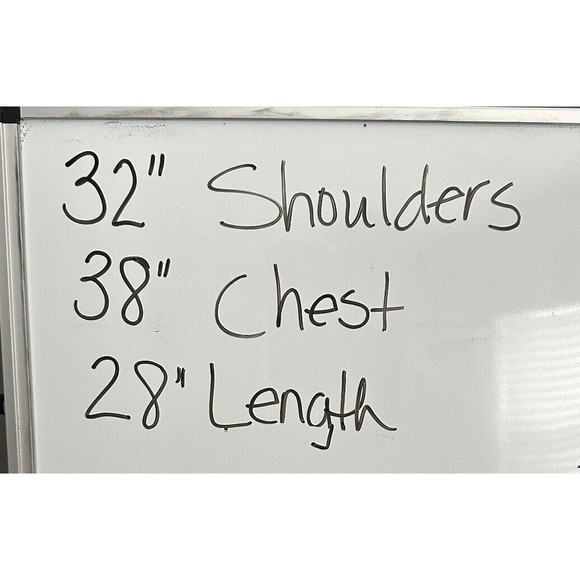 32" Shoulders
38" Chest
28" Length